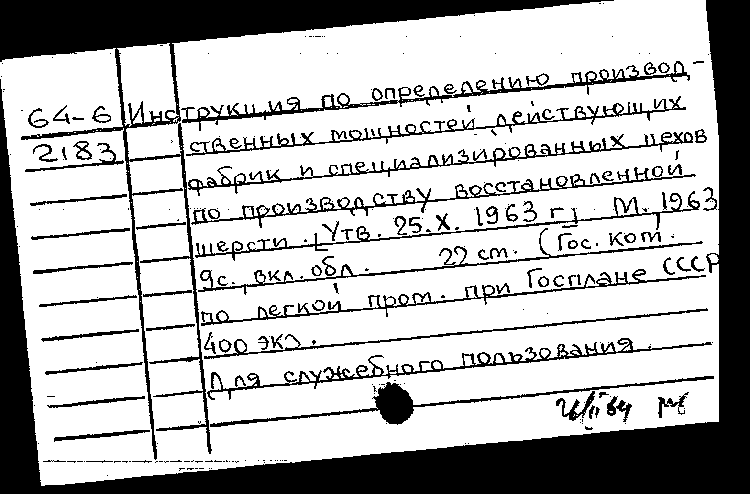 64-6 Инструкция по определению производ-
2183 ственных мощностей действующих
фабрик и специализированных цехов
по производству восстановленной
шерсти. [Утв. 25.X.1963 г] М., 1963
9с., вкл. обл. 22 см. (Гос. ком.
по легкой пром. при Госплане СССР
400 экз.
Для служебного пользования.
26/II 64